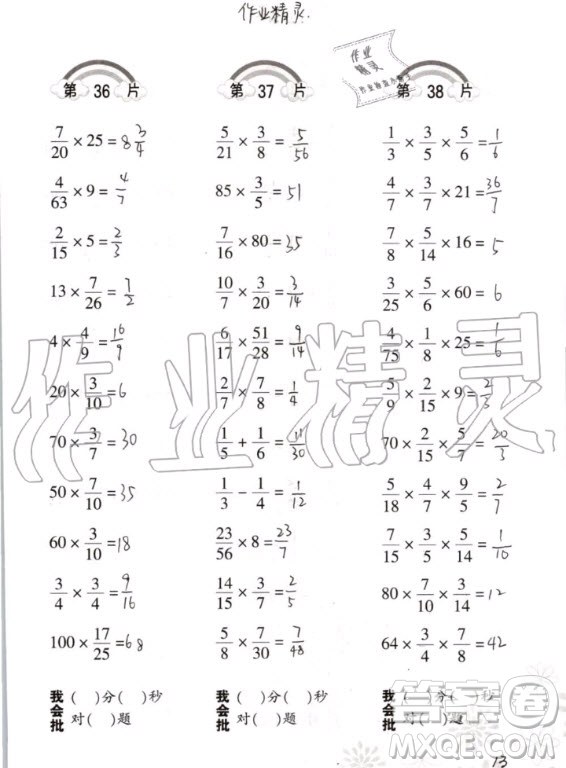 作业精灵
作业
精灵
第 36 片
7/20 × 25 = 8 3/4
4/63 × 9 = 4/7
2/15 × 5 = 2/3
13 × 7/26 = 7/2
4 × 4/9 = 16/9
20 × 3/10 = 6
70 × 3/7 = 30
50 × 7/10 = 35
60 × 3/10 = 18
3/4 × 3/4 = 9/16
100 × 17/25 = 68
我会批 ( )分( )秒
对( )题
第 37 片
5/21 × 3/8 = 5/56
85 × 3/5 = 51
7/16 × 80 = 35
10/7 × 3/20 = 3/14
6/17 × 51/28 = 9/14
2/7 × 7/8 = 1/4
1/5 + 1/6 = 11/30
1/3 - 1/4 = 1/12
23/56 × 8 = 23/7
14/15 × 3/7 = 2/5
5/8 × 7/30 = 7/48
我会批 ( )分( )秒
对( )题
第 38 片
1/3 × 3/5 × 5/6 = 1/6
4/7 × 3/7 × 21 = 36/7
7/8 × 5/14 × 16 = 5
3/25 × 5/6 × 60 = 6
4/75 × 1/8 × 25 = 1/6
5/9 × 2/15 × 9 = 2/3
70 × 2/15 × 5/7 = 20/3
5/18 × 4/7 × 9/5 = 2/7
7/15 × 3/5 × 5/14 = 1/10
80 × 7/10 × 3/14 = 12
64 × 3/4 × 7/8 = 42
我会批 ( )分( )秒
对( )题
13
作业精灵
答案圈
MXQE.COM